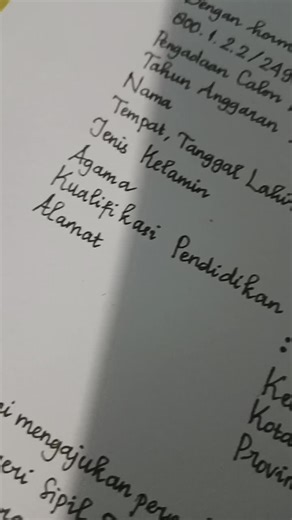 Dengan horm
800.1.2.2/249
Pengadaan Calon
Tahun Anggaran
Nama
Tempat, Tanggal Lahir
Jenis Kelamin
Agama
Kualifikasi Pendidikan
Alamat
:
Kota
Provin
mengajukan
Sipil